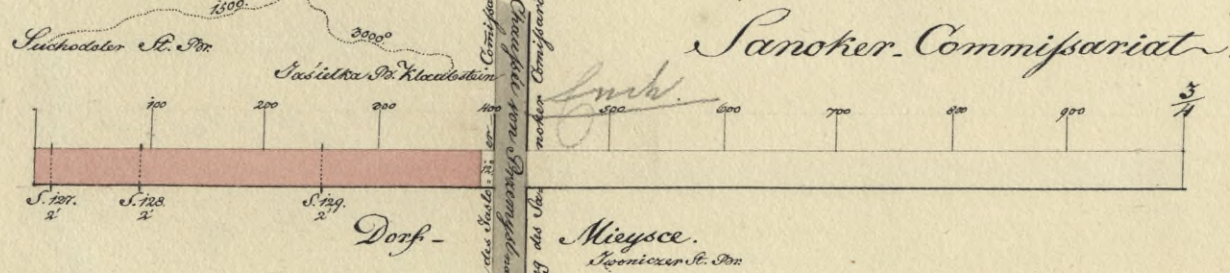 1500.
Suchodoler St. Br.
3000°
Jasielka B. Klaubstein
Sanoker-Commißariat
100 200 300 400 500 600 700 800 900 3/4
S. 127. 2'
S. 128. 2'
S. 129. 2'
Dorf-
Mieysce.
Iwoniczer St. Br.
Chaußée von Przemysl
des Sanoker Comißariats